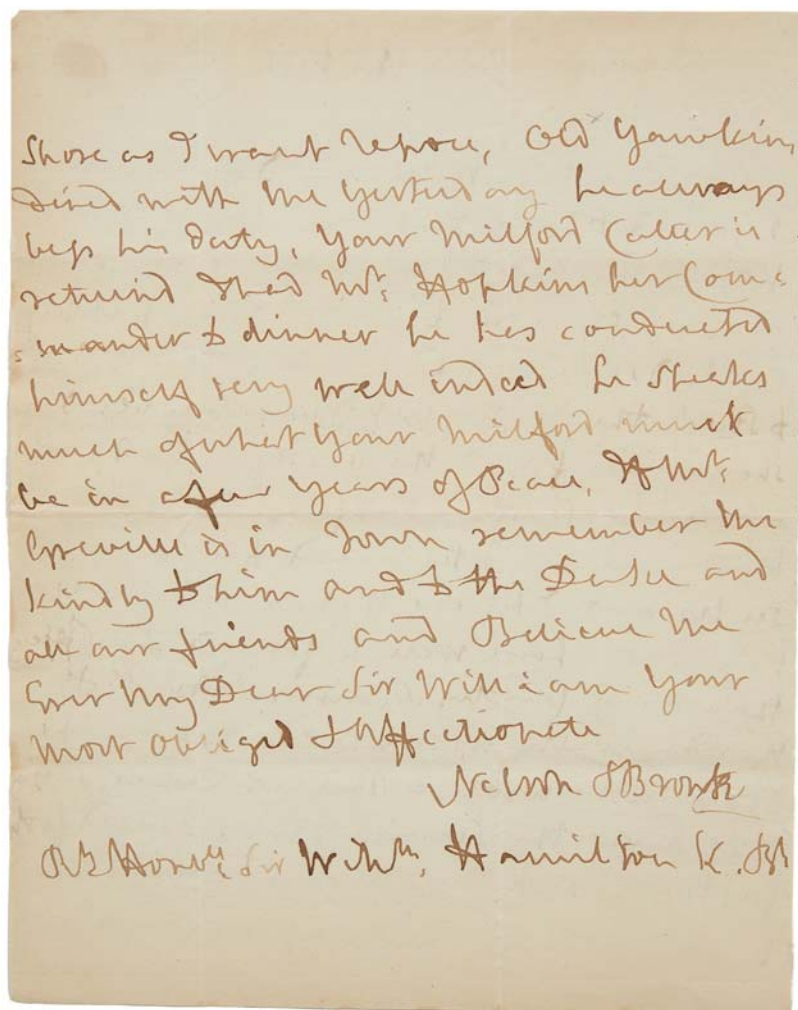 Shore as I want repose, Old Yawkins
dined with me yesterday he always
begs his duty, Your Milford Cutter is
returnd I had Mr: Hopkins her Com=
=mander to dinner he has conducted
himself very well indeed he speaks
much of what your Milford must
be in a few years of Peace, If Mr:
Greville is in Town remember me
kindly to him and to the Duke and
all our friends and Believe me
Ever My Dear Sir William Your
most obliged & Affectionate
Nelson & Bronte
Rt: Honble: Sir Willm. Hamilton K. B: